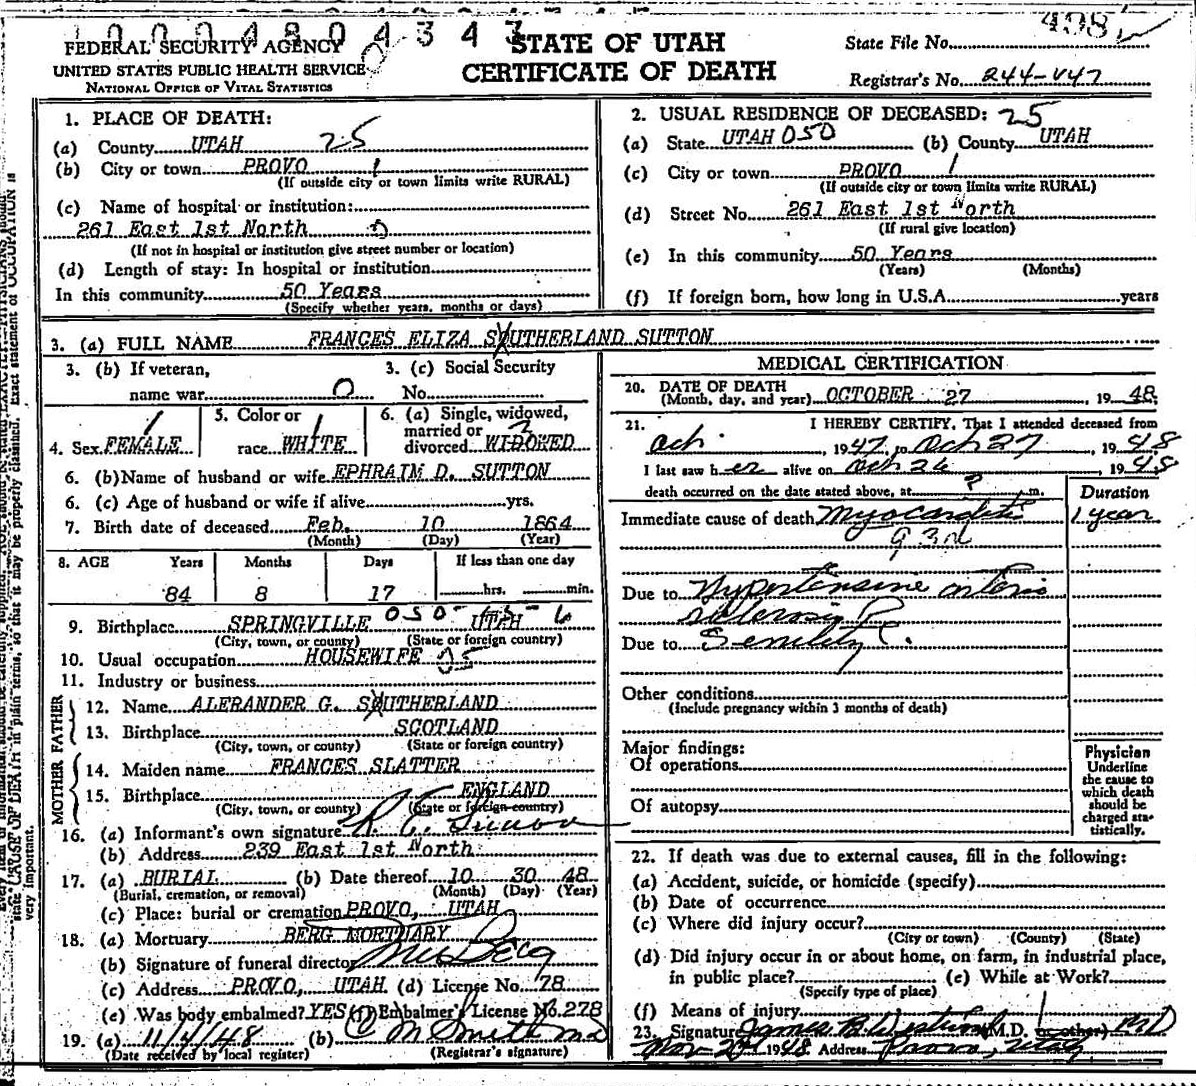 1 0 0 0 4 8 0 4 3 4 3
498
FEDERAL SECURITY AGENCY
UNITED STATES PUBLIC HEALTH SERVICE
NATIONAL OFFICE OF VITAL STATISTICS
STATE OF UTAH
CERTIFICATE OF DEATH
State File No.
Registrar's No. 244-V47
1. PLACE OF DEATH:
(a) County UTAH 25
(b) City or town PROVO 1
(If outside city or town limits write RURAL)
(c) Name of hospital or institution:
261 East 1st North
(If not in hospital or institution give street number or location)
(d) Length of stay: In hospital or institution
In this community 50 Years
(Specify whether years, months or days)
2. USUAL RESIDENCE OF DECEASED: 25
(a) State UTAH 050 (b) County UTAH
(c) City or town PROVO 1
(If outside city or town limits write RURAL)
(d) Street No. 261 East 1st North
(If rural give location)
(e) In this community 50 Years
(Years) (Months)
(f) If foreign born, how long in U.S.A. years
3. (a) FULL NAME FRANCES ELIZA SUTHERLAND SUTTON
3. (b) If veteran,
name war 0
3. (c) Social Security
No.
4. Sex FEMALE 1
5. Color or
race WHITE 1
6. (a) Single, widowed,
married or
divorced WIDOWED
6. (b) Name of husband or wife EPHRAIM D. SUTTON
6. (c) Age of husband or wife if alive yrs.
7. Birth date of deceased Feb. 10 1864
(Month) (Day) (Year)
8. AGE Years Months Days If less than one day
84 8 17 hrs. min.
9. Birthplace SPRINGVILLE UTAH
(City, town, or county) (State or foreign country)
10. Usual occupation HOUSEWIFE
11. Industry or business
FATHER
12. Name ALERANDER G. SUTHERLAND
13. Birthplace SCOTLAND
(City, town, or county) (State or foreign country)
MOTHER
14. Maiden name FRANCES SLATTER
15. Birthplace ENGLAND
(City, town, or county) (State or foreign country)
16. (a) Informant's own signature
(b) Address 239 East 1st North
17. (a) BURIAL (b) Date thereof 10 30 48
(Burial, cremation, or removal) (Month) (Day) (Year)
(c) Place: burial or cremation PROVO, UTAH
18. (a) Mortuary BERG MORTUARY
(b) Signature of funeral director Berg
(c) Address PROVO, UTAH (d) License No. 78
(e) Was body embalmed? YES (f) Embalmer's License No. 278
19. (a) 11/4/48 (b) Smith MD
(Date received by local register) (Registrar's signature)
MEDICAL CERTIFICATION
20. DATE OF DEATH
(Month, day, and year) OCTOBER 27, 1948.
21. I HEREBY CERTIFY, That I attended deceased from
Oct. 1947, to Oct 27, 1948
I last saw her alive on Oct 26, 1948
death occurred on the date stated above, at ? m.
Duration
Immediate cause of death Myocarditis 1 year
93d
Due to Hypertensive arterio
sclerosis
Due to Senility
Other conditions
(Include pregnancy within 3 months of death)
Major findings:
Of operations
Of autopsy
Physician
Underline
the cause to
which death
should be
charged sta-
tistically.
22. If death was due to external causes, fill in the following:
(a) Accident, suicide, or homicide (specify)
(b) Date of occurrence
(c) Where did injury occur?
(City or town) (County) (State)
(d) Did injury occur in or about home, on farm, in industrial place,
in public place? (e) While at Work?
(Specify type of place)
(f) Means of injury
23. Signature James (M.D. or other) MD
Nov 1948 Address Provo, Utah
state CAUSE OF DEATH in plain terms, so that it may be properly classified. Exact statement of OCCUPATION is
very important.